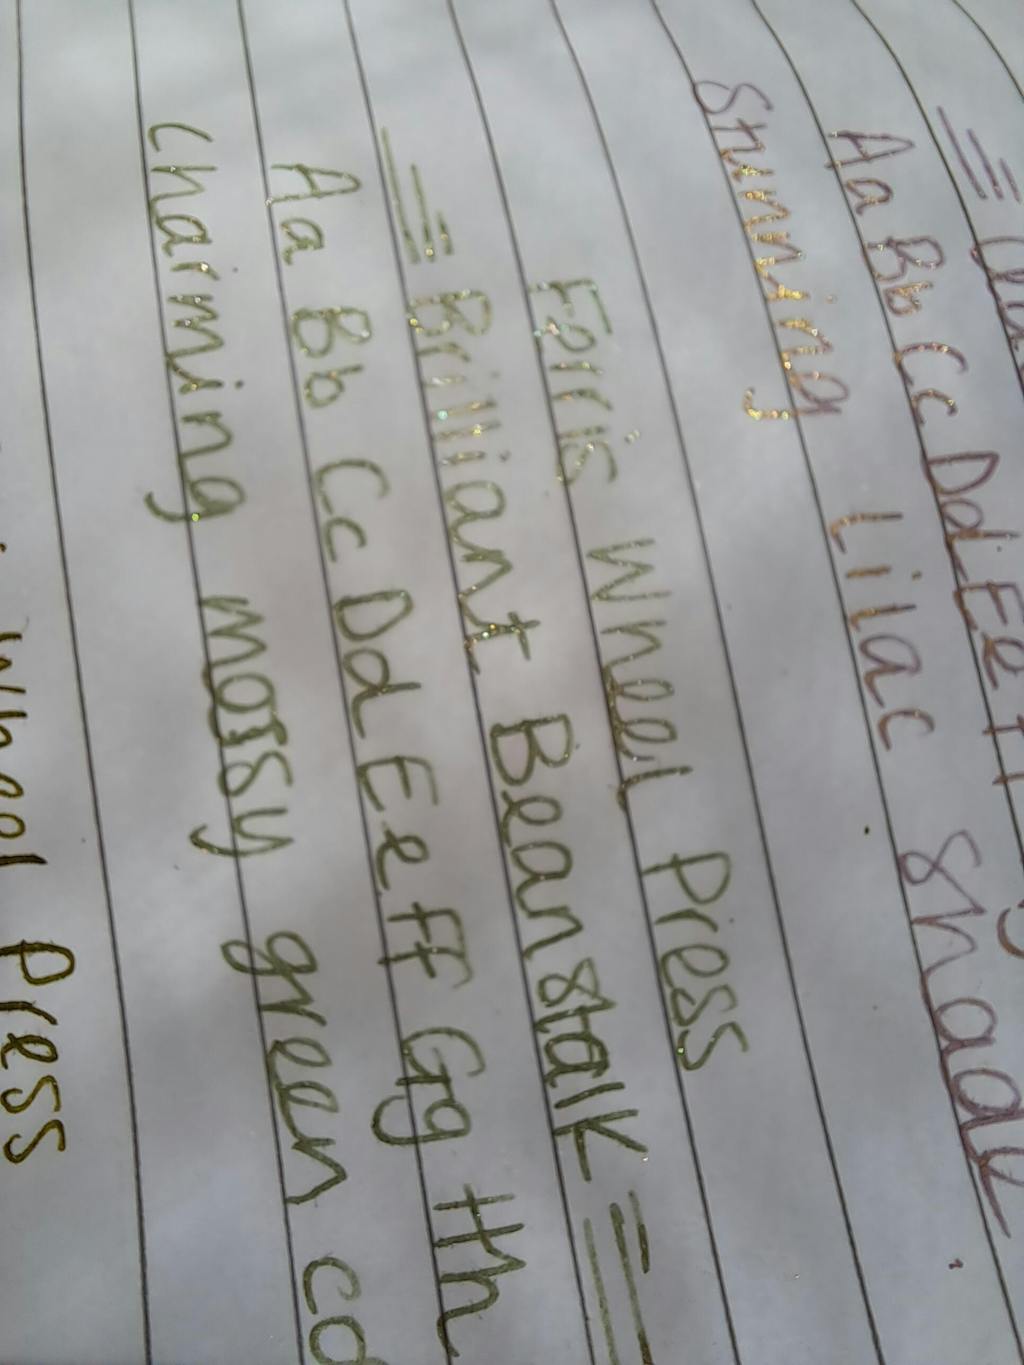 Aa Bb Cc Dd Ee
Stunning Lilac shade
Ferris Wheel Press
Brilliant Beanstalk
Aa Bb Cc Dd Ee Ff Gg Hh
Charming mossy green
Wheel Press